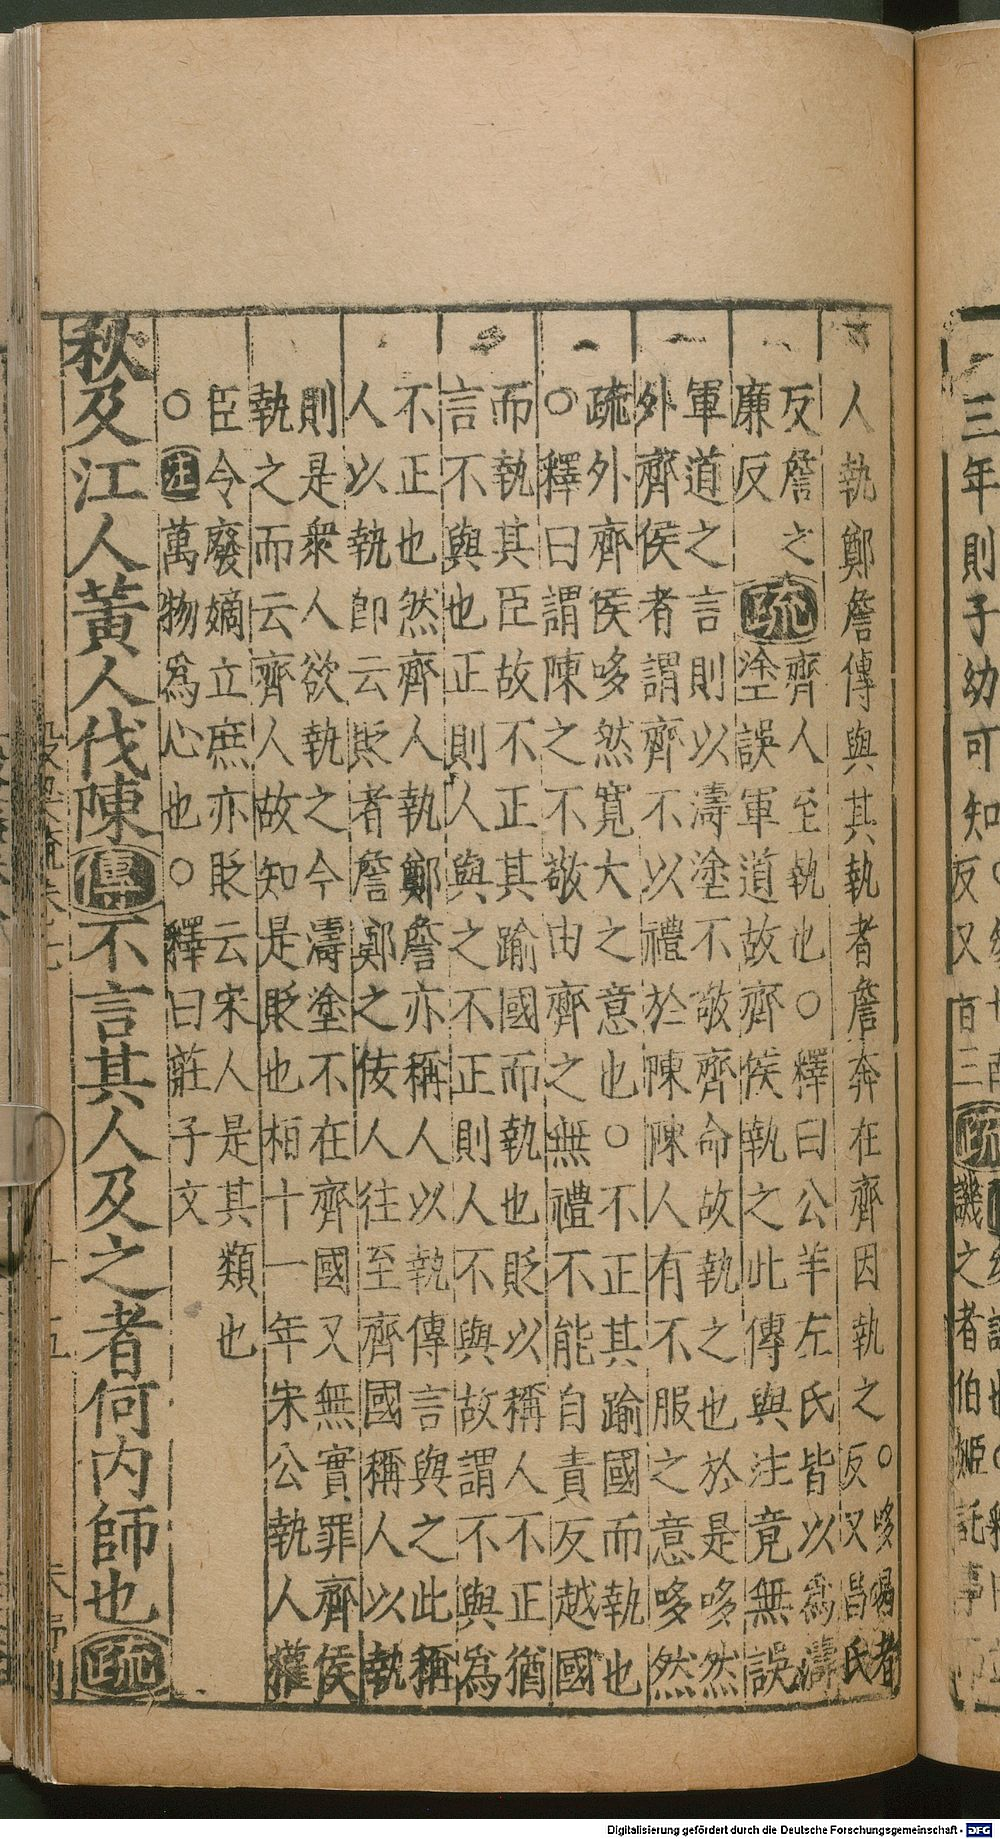 三年則子幼可知
反又百三疏譏之者伯姬託事
人執鄭詹傳與其執者詹奔在齊因執之○哆唱者
反又昌氏
反詹之
廉反
疏
齊人至執也○釋曰公羊左氏皆以爲濤
塗誤軍道故齊侯執之此傳與注竟無誤
軍道之言則以濤塗不敬齊命故執之也於是哆然
外齊侯者謂齊不以禮於陳陳人有不服之意哆然
疏外齊侯哆然寬大之意也○不正其踰國而執也
○釋曰謂陳之不敬由齊之無禮不能自責反越國
而執其臣故不正其踰國而執也貶以稱人不正猶
言不與也正則人與之不正則人不與故謂不與爲
不正也然齊人執鄭詹亦稱人以執傳言與之此稱
人以執即云貶者詹鄭之佞人往至齊國稱人以執
則是衆人欲執之今濤塗不在齊國又無實罪齊侯
執之而云齊人故知是貶也桓十一年宋公執人權
臣令廢嫡立庶亦貶云宋人是其類也
○注萬物爲心也○釋曰莊子文
秋及江人黃人伐陳傳不言其人及之者何內師也疏
Digitalisierung gefördert durch die Deutsche Forschungsgemeinschaft - DFG